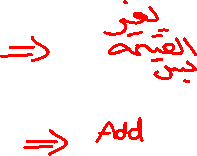 يغير
القيمه
بس
Add